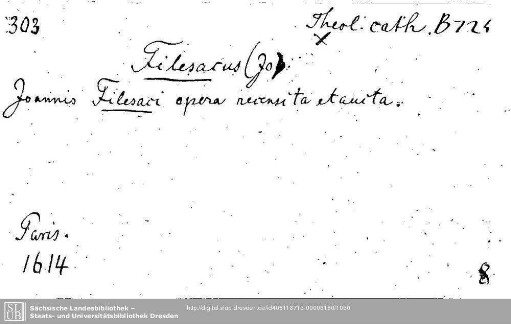 303
Theol. cath. B 724
Filesacus (Jo).
Joannis Filesaci opera recensita et aucta.
Paris.
1614
8
SLUB
Sächsische Landesbibliothek –
Staats- und Universitätsbibliothek Dresden